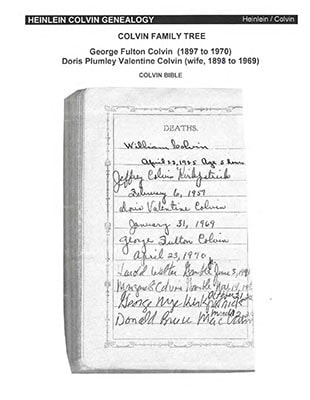 HEINLEIN COLVIN GENEALOGY
Heinlein / Colvin
COLVIN FAMILY TREE
George Fulton Colvin (1897 to 1970)
Doris Plumley Valentine Colvin (wife, 1898 to 1969)
COLVIN BIBLE
DEATHS.
William Colvin
April 23, 1925 Age 5 hours
Jeffrey Colvin Kirkpatrick
February 6, 1957
Doris Valentine Colvin
January 31, 1969
George Fulton Colvin
April 23, 1970
Harold Walter June 5,
Margaret Colvin Nov 14,
George Nye Kirkpatrick
Donald Bruce Mac